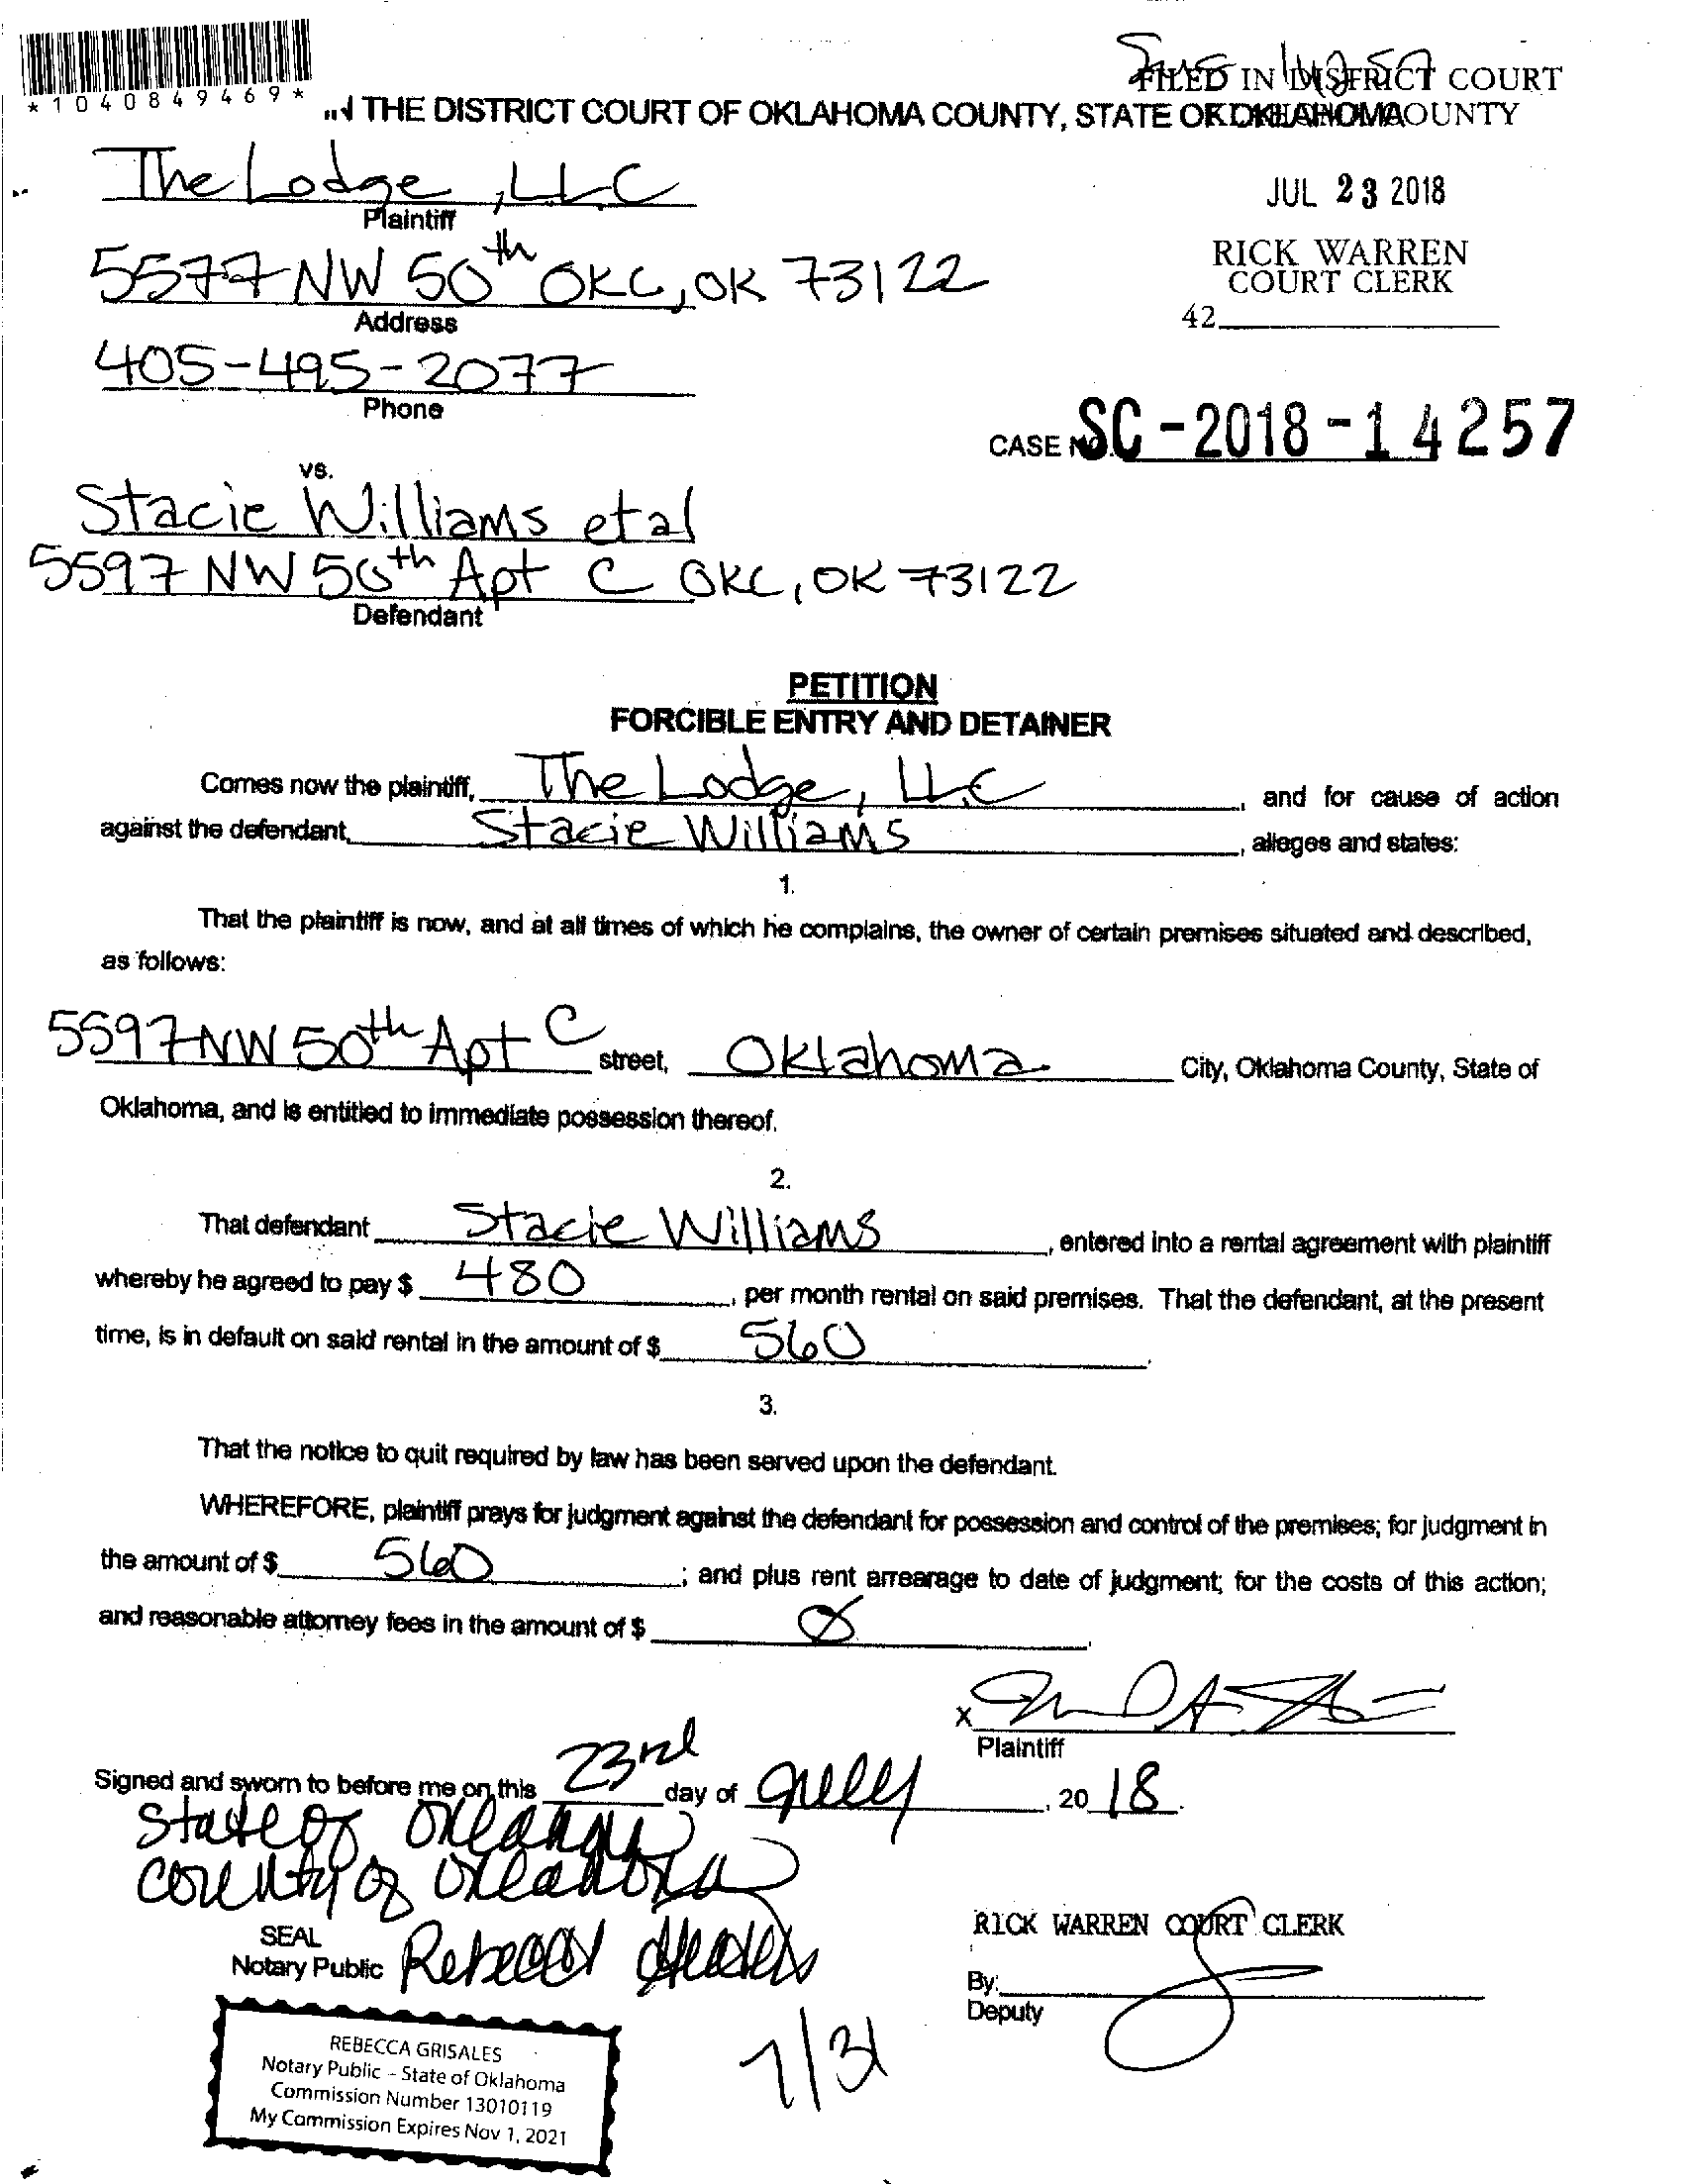 *1040849469*
FILED IN DISTRICT COURT
THE DISTRICT COURT OF OKLAHOMA COUNTY, STATE OF OKLAHOMA
OKLAHOMA COUNTY
JUL 23 2018
RICK WARREN
COURT CLERK
42
The Lodge, LLC
Plaintiff
5577 NW 50th OKC, OK 73122
Address
405-495-2077
Phone
CASE NO. SC-2018-14257
vs.
Stacie Williams et al
5597 NW 50th Apt C OKC, OK 73122
Defendant
PETITION
FORCIBLE ENTRY AND DETAINER
Comes now the plaintiff, The Lodge, LLC, and for cause of action
against the defendant, Stacie Williams, alleges and states:
1.
That the plaintiff is now, and at all times of which he complains, the owner of certain premises situated and described,
as follows:
5597 NW 50th Apt C street, Oklahoma City, Oklahoma County, State of
Oklahoma, and is entitled to immediate possession thereof.
2.
That defendant Stacie Williams, entered into a rental agreement with plaintiff
whereby he agreed to pay $ 480, per month rental on said premises. That the defendant, at the present
time, is in default on said rental in the amount of $ 560.
3.
That the notice to quit required by law has been served upon the defendant.
WHEREFORE, plaintiff prays for judgment against the defendant for possession and control of the premises; for judgment in
the amount of $ 560; and plus rent arrearage to date of judgment; for the costs of this action;
and reasonable attorney fees in the amount of $ Ø.
X
Plaintiff
Signed and sworn to before me on this 23rd day of July, 2018.
State of Oklahoma
County of Oklahoma
SEAL
Notary Public Rebecca Grisales
RICK WARREN COURT CLERK
By:
Deputy
7/31
REBECCA GRISALES
Notary Public - State of Oklahoma
Commission Number 13010119
My Commission Expires Nov 1, 2021